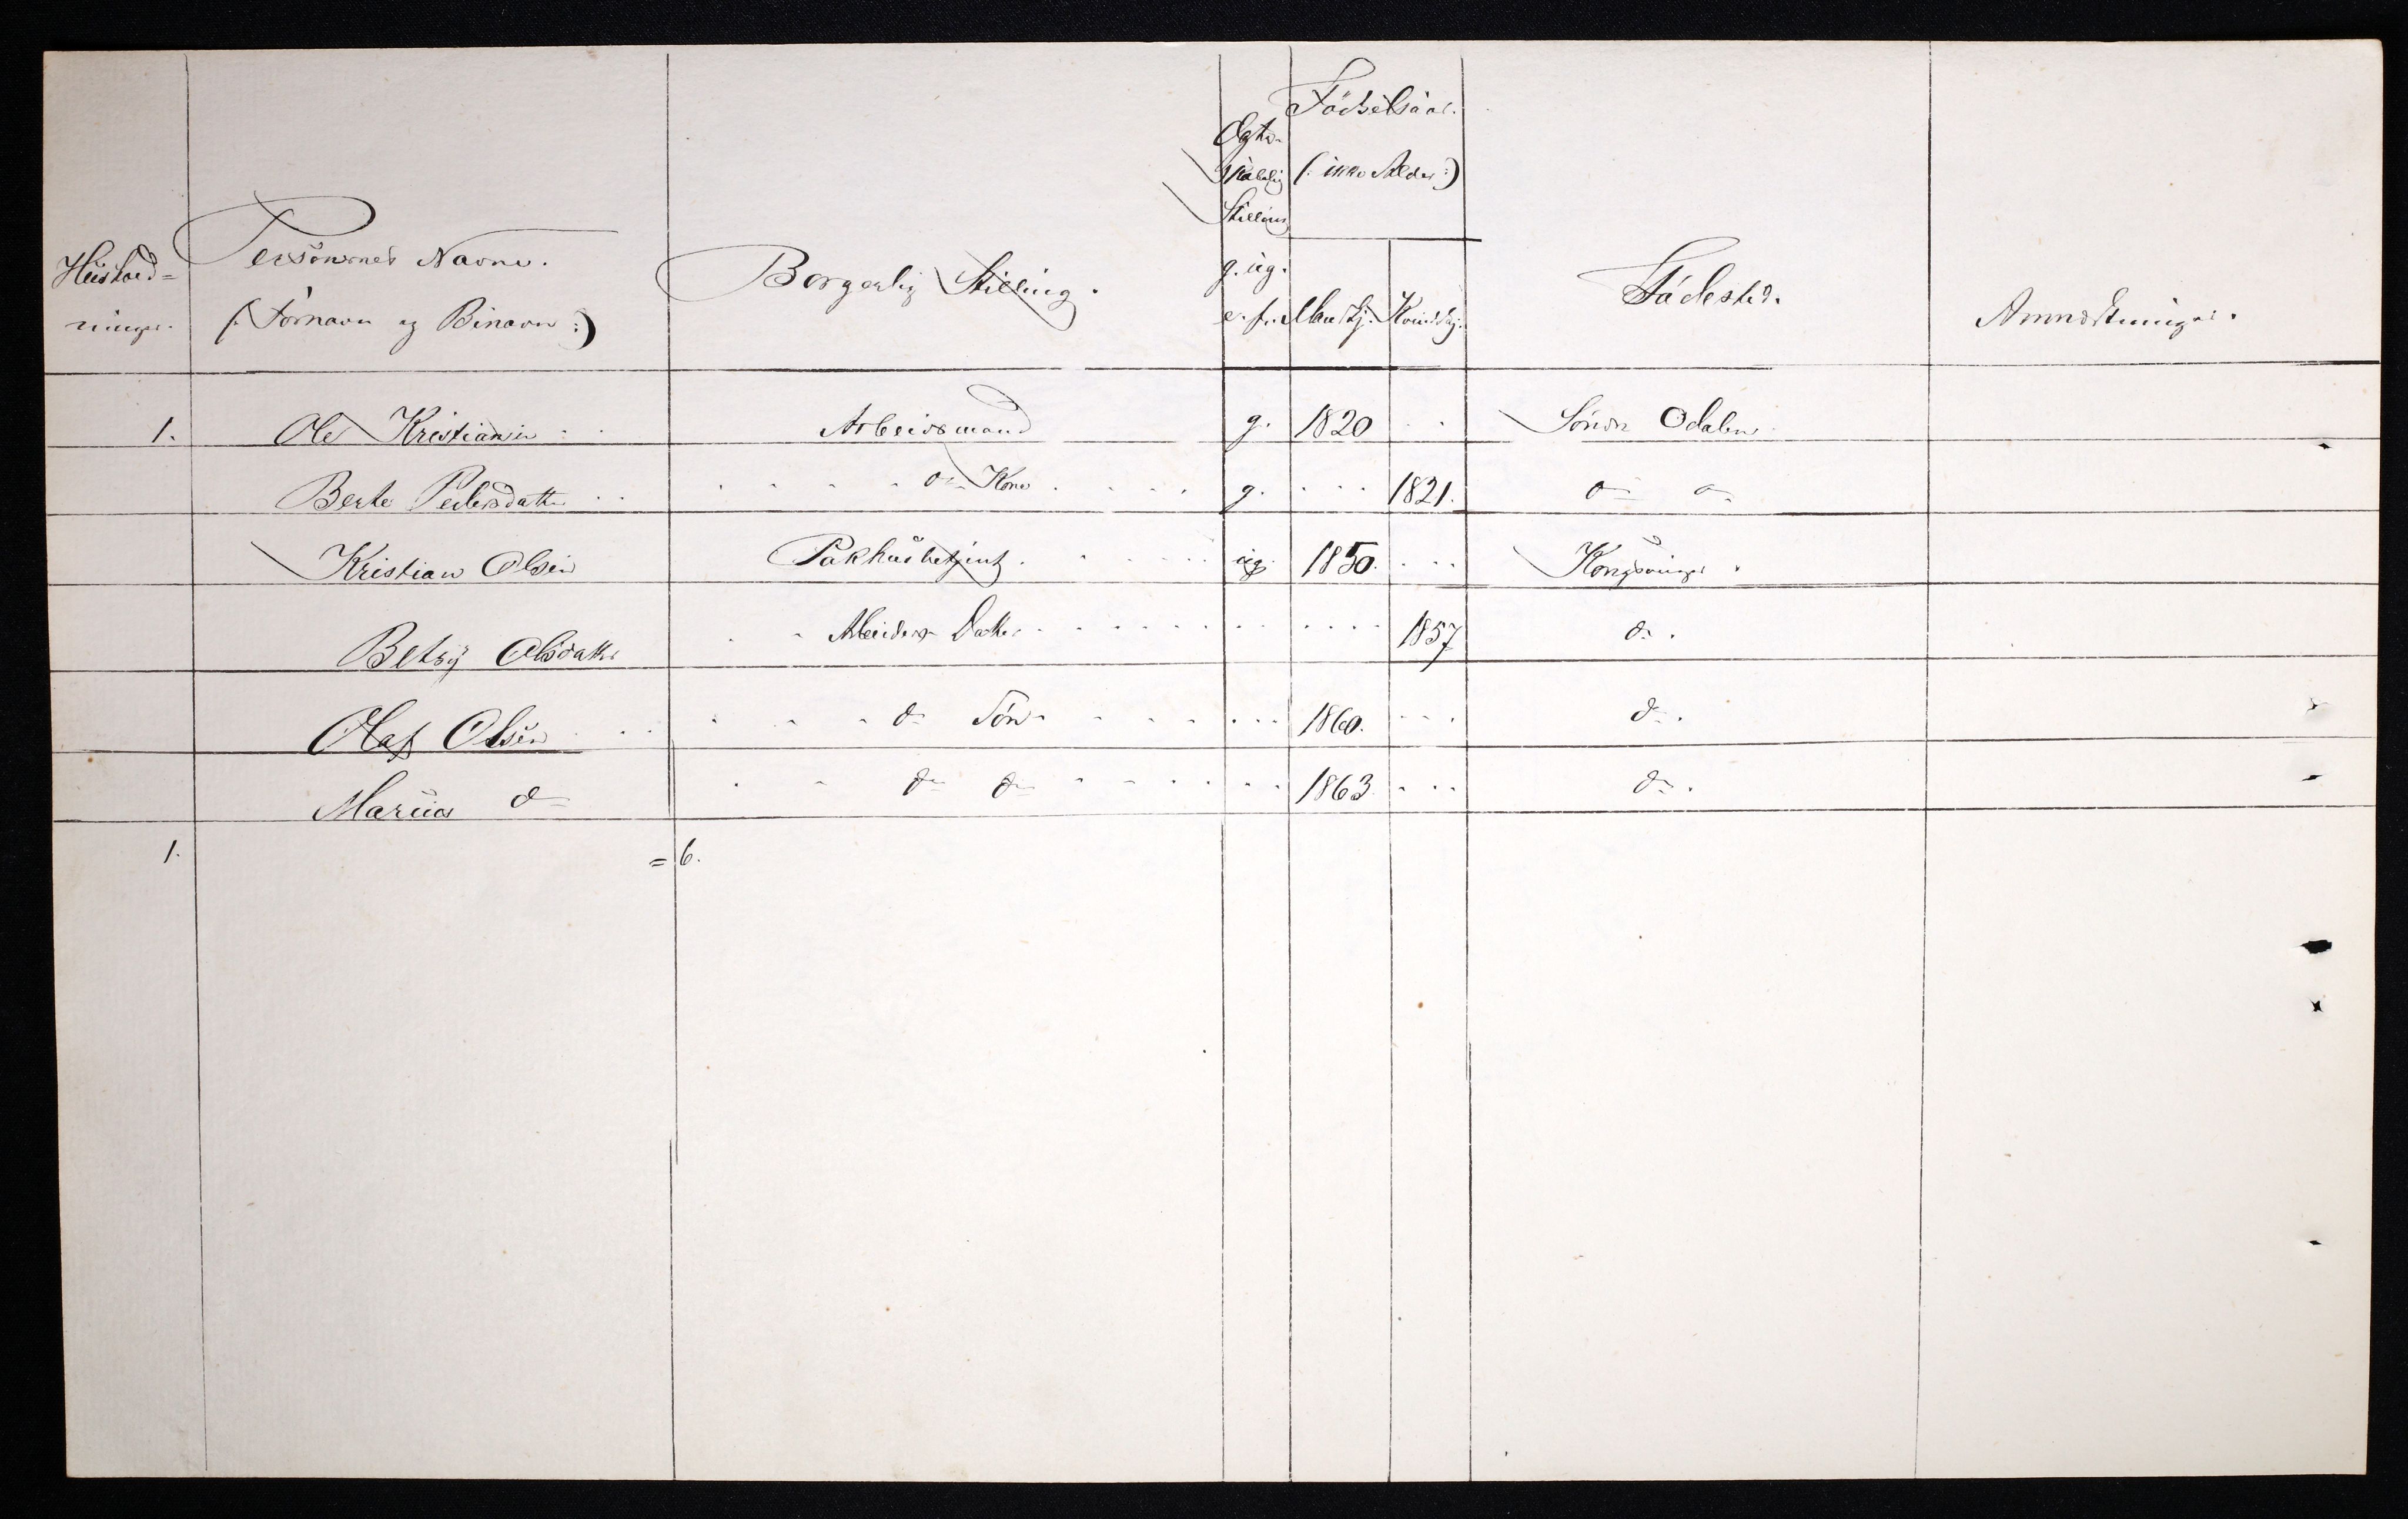 Hushold=
ninger.
Personernes Navne.
(: Fornavn og Binavn :)
Borgerlig Stilling.
Ægte-
skabelig
Stilling
g. ug.
e. f.
Födselsaar.
(: ikke Alder :)
Mandkj.
Kvindekj.
Födested.
Anmærkninger.
1. Ole Kristiansen Arbeidsmand g. 1820 Söndre Odalen
Berte Pedersdatter do Kone g. 1821. do do
Kristian Olsen Pakhusbetjent ug. 1850. Kongsvinger.
Betsy Olsdatter Arbeiders Datter 1857 do.
Olaf Olsen do Sön 1860. do.
Marius do do do 1863. do.
1. = 6.